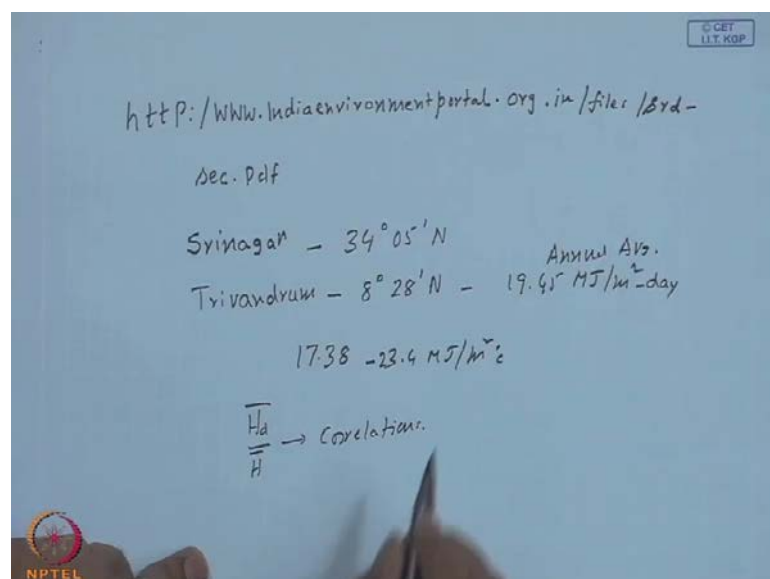 © CET
I.I.T. KGP
http:/WWW.Indiaenvironmentportal.org.in/files/srd-
sec.Pdf
Srinagar – 34°05'N
Annual Avg.
Trivandrum – 8°28'N – 19.45 MJ/m²-day
17.38 – 23.4 MJ/m²
H̅d̅/H̅ → Correlations.
NPTEL